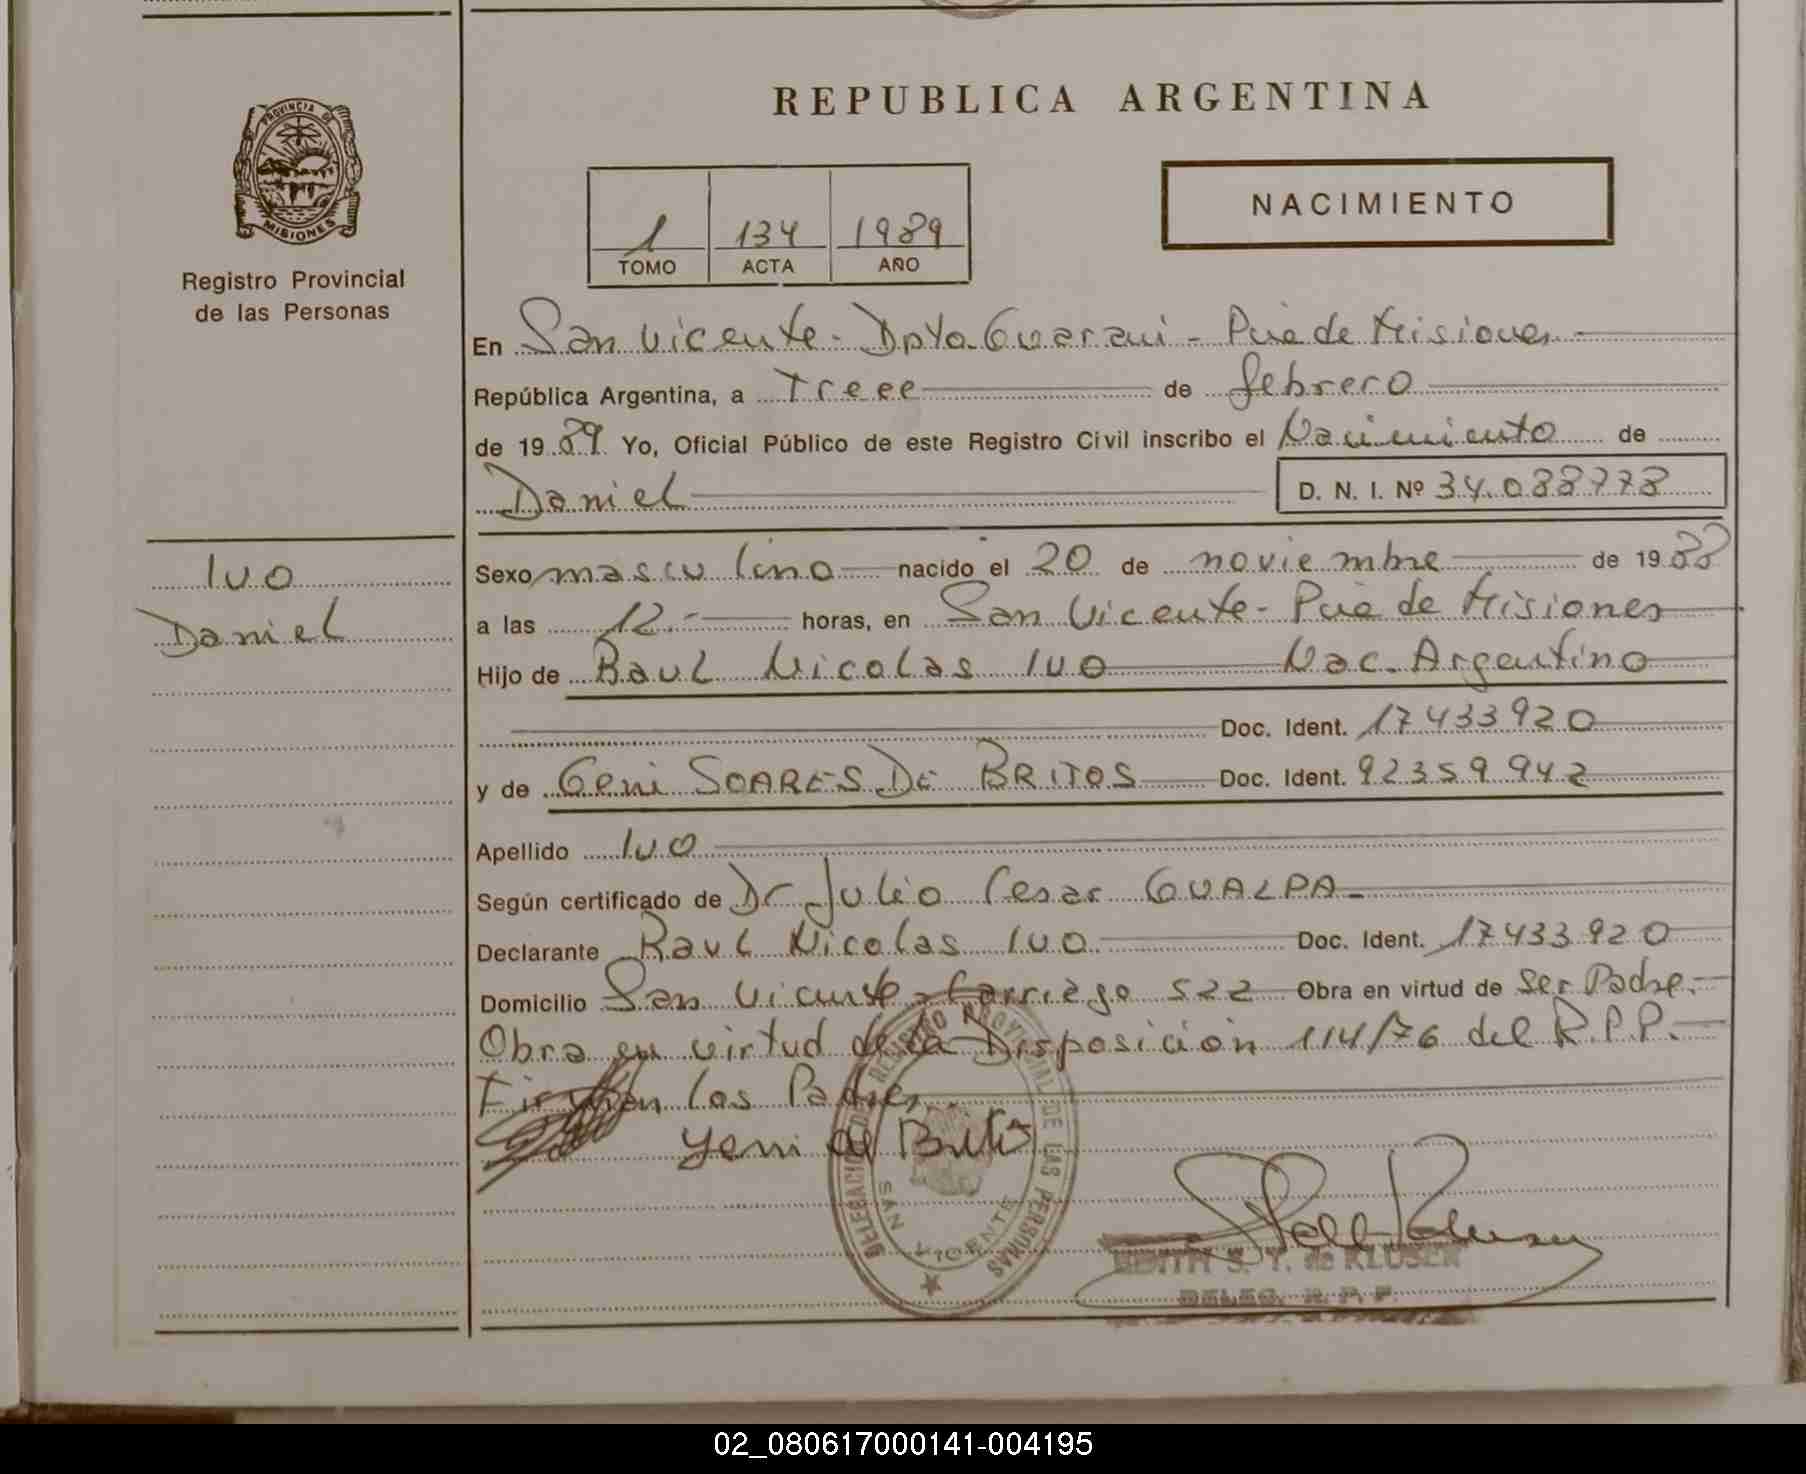 REPUBLICA ARGENTINA
PROVINCIA DE
MISIONES
Registro Provincial
de las Personas
1 134 1989
TOMO ACTA AÑO
NACIMIENTO
En San Vicente - Dpto. Guarani - Pcia de Misiones
República Argentina, a Trece de febrero
de 1989 Yo, Oficial Público de este Registro Civil inscribo el Nacimiento de
Daniel D. N. I. Nº 34.088778
IVO
Daniel
Sexo masculino nacido el 20 de noviembre de 1988
a las 12.- horas, en San Vicente - Pcia de Misiones
Hijo de Raul Nicolas IVO Nac. Argentino
Doc. Ident. 17433920
y de Geni SOARES DE BRITOS Doc. Ident. 92359942
Apellido IVO
Según certificado de Dr Julio Cesar GUALPA-
Declarante Raul Nicolas IVO Doc. Ident. 17433920
Domicilio San Vicente - Carriego 522 Obra en virtud de ser Padre.-
Obra en virtud de la Disposición 114/76 del R.P.P.-
Firman los Padres.
Yeni de Britos
DELEGACION REGISTRO PROVINCIAL DE LAS PERSONAS
SAN VICENTE
EDITH S. Y. de KLUSEN
DELEG. R. P. P.
02_080617000141-004195